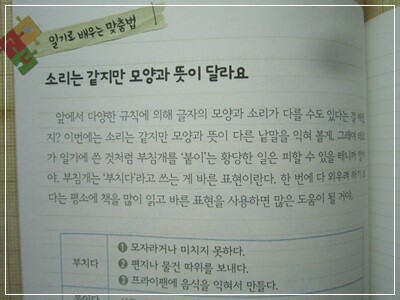 일기로 배우는 맞춤법
소리는 같지만 모양과 뜻이 달라요
앞에서 다양한 규칙에 의해 글자의 모양과 소리가 다를 수도 있다는 걸
지? 이번에는 소리는 같지만 모양과 뜻이 다른 낱말을 익혀 볼게. 그래야
가 일기에 쓴 것처럼 부침개를 '붙이'는 황당한 일은 피할 수 있을 테니까
야. 부침개는 '부치다'라고 쓰는 게 바른 표현이란다. 한 번에 다 외우려 하기
다는 평소에 책을 많이 읽고 바른 표현을 사용하면 많은 도움이 될 거야.
부치다
❶ 모자라거나 미치지 못하다.
❷ 편지나 물건 따위를 보내다.
❸ 프라이팬에 음식을 익혀서 만들다.